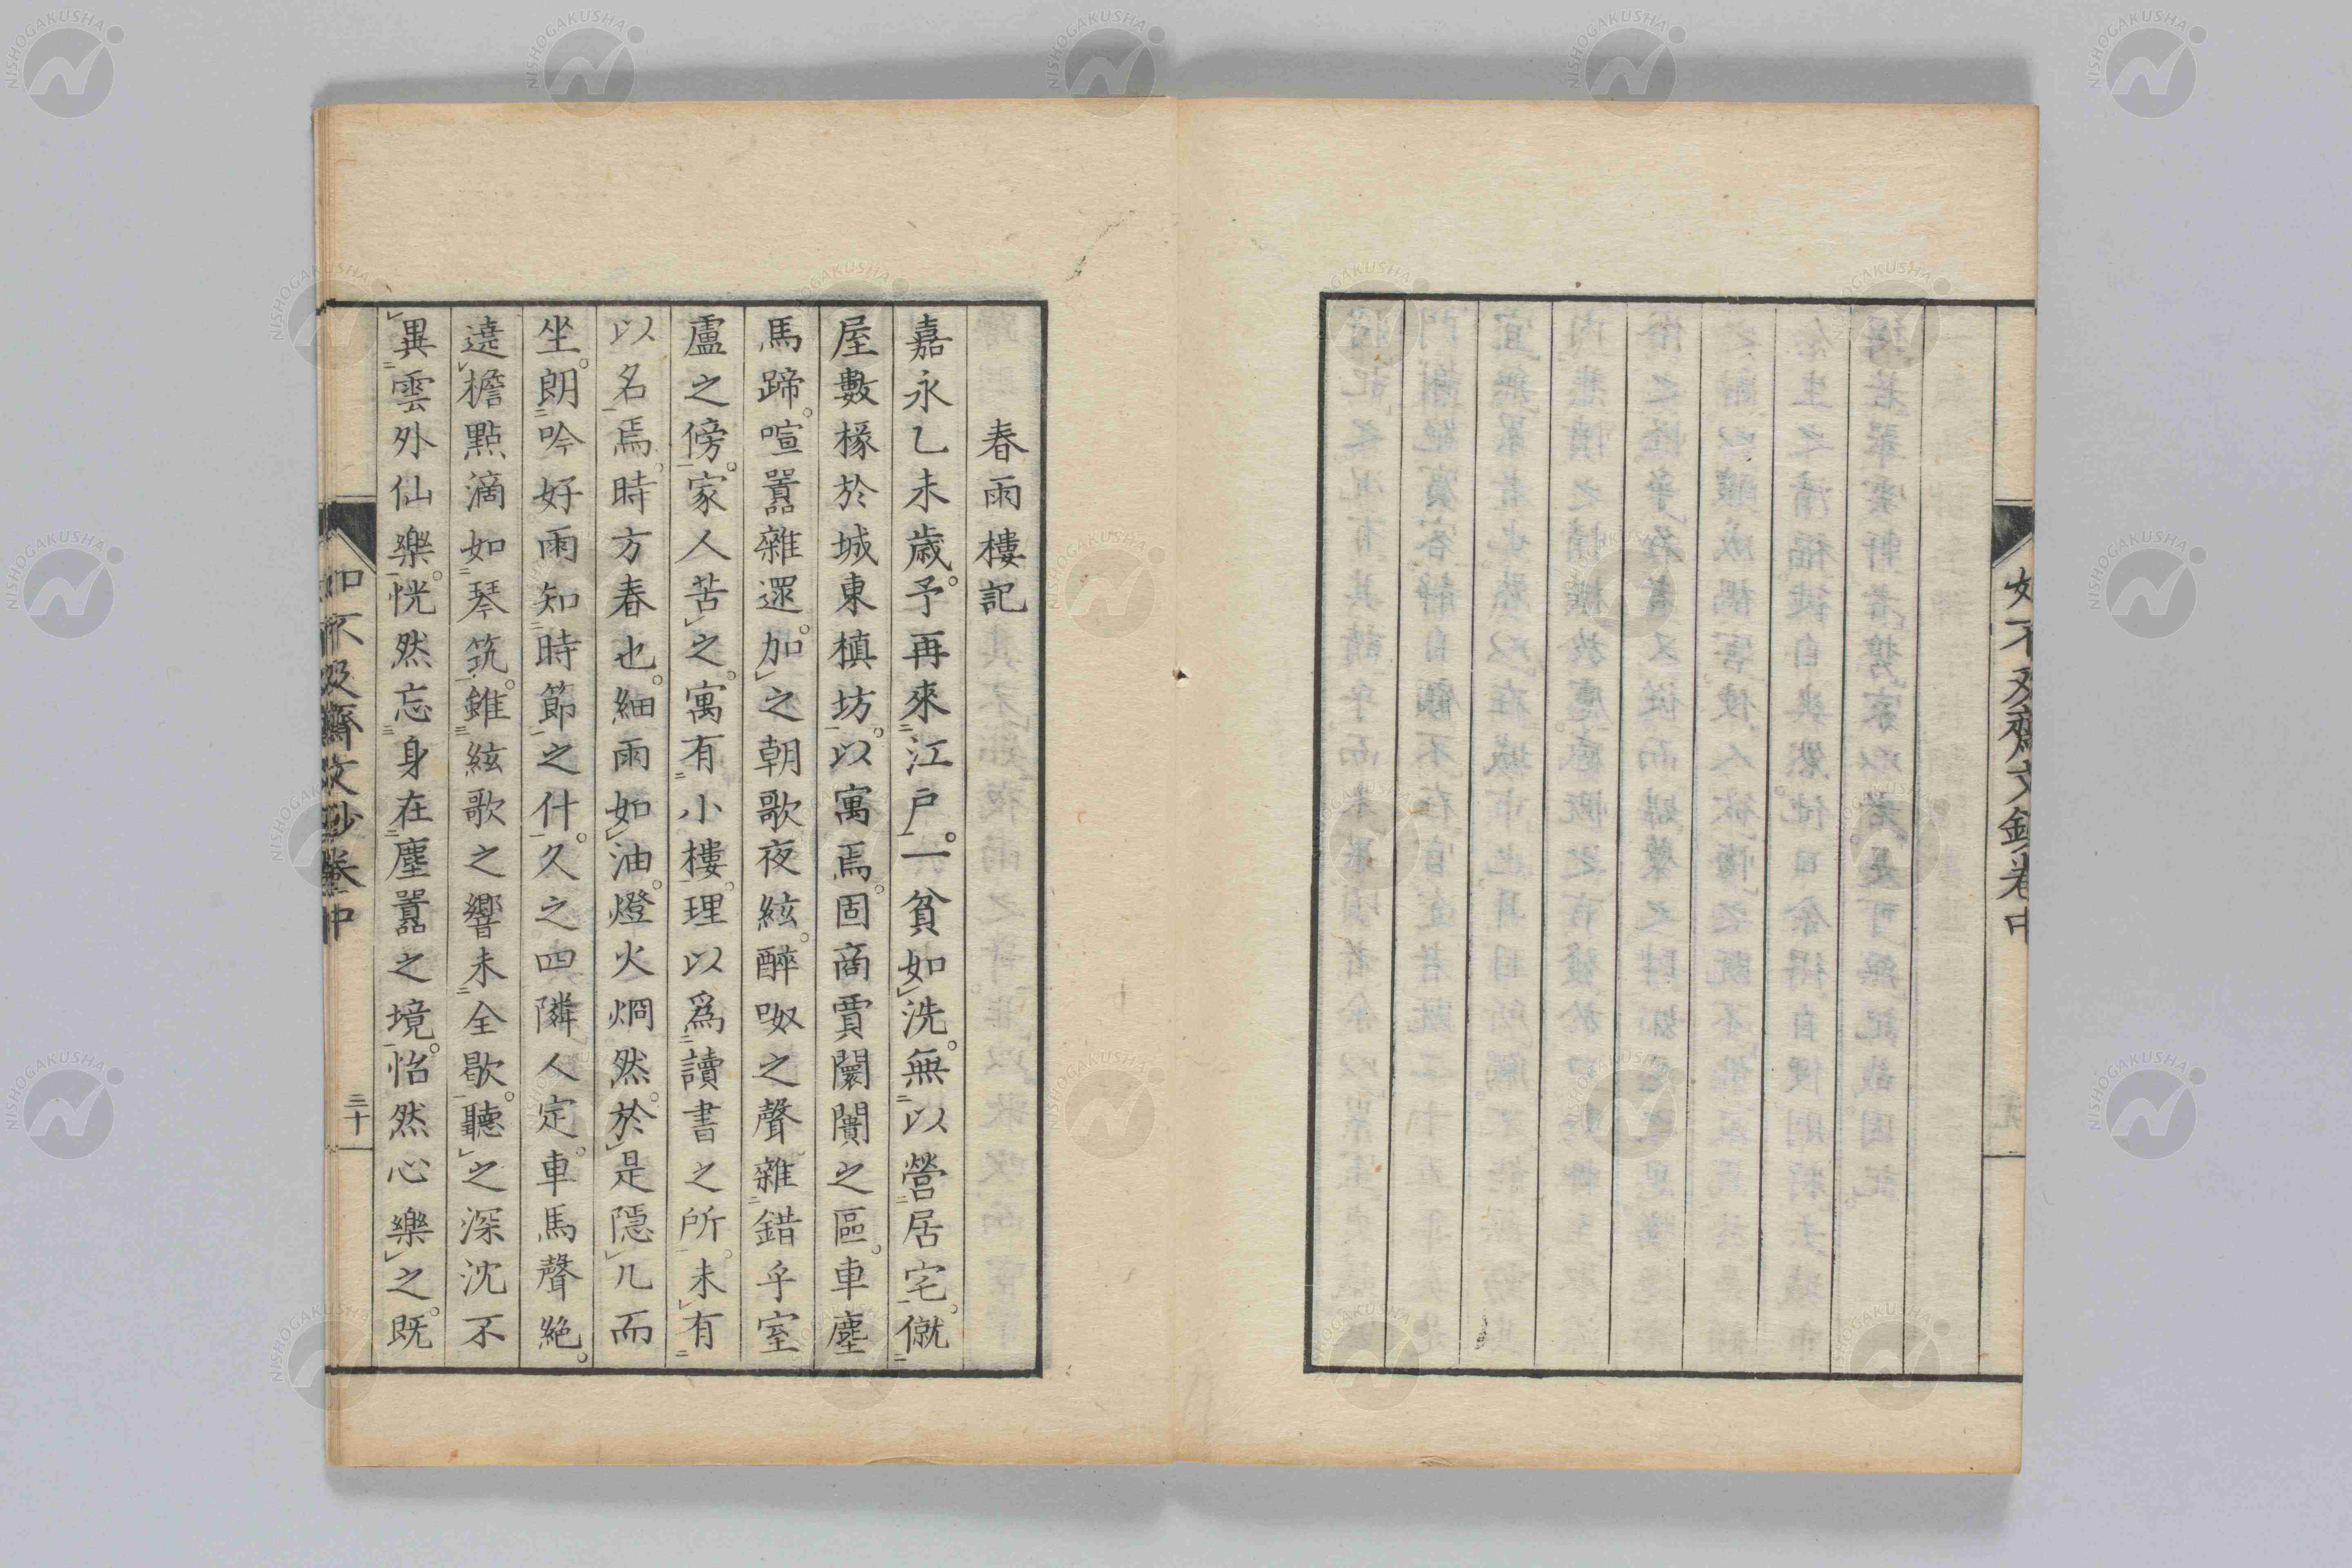 如不及齋文鈔卷中
春雨樓記
嘉永乙未歲。予再來江戶。一貧如洗。無以營居宅。僦
屋數椽於城東槙坊。以寓焉。固商賈闤闠之區。車塵
馬蹄。喧囂雜還。加之朝歌夜絃。醉呶之聲。雜錯乎室
盧之傍。家人苦之。寓有小樓。理以爲讀書之所。未有
以名焉。時方春也。細雨如油。燈火烱然。於是隱几而
坐。朗吟好雨知時節之什。久之四隣人定。車馬聲絶。
遶檐點滴如琴筑。雖絃歌之響未全歇。聽之深沈不
異雲外仙樂。恍然忘身在塵囂之境。怡然心樂之。既
如不及齋文鈔卷中
三十
NISHOGAKUSHA